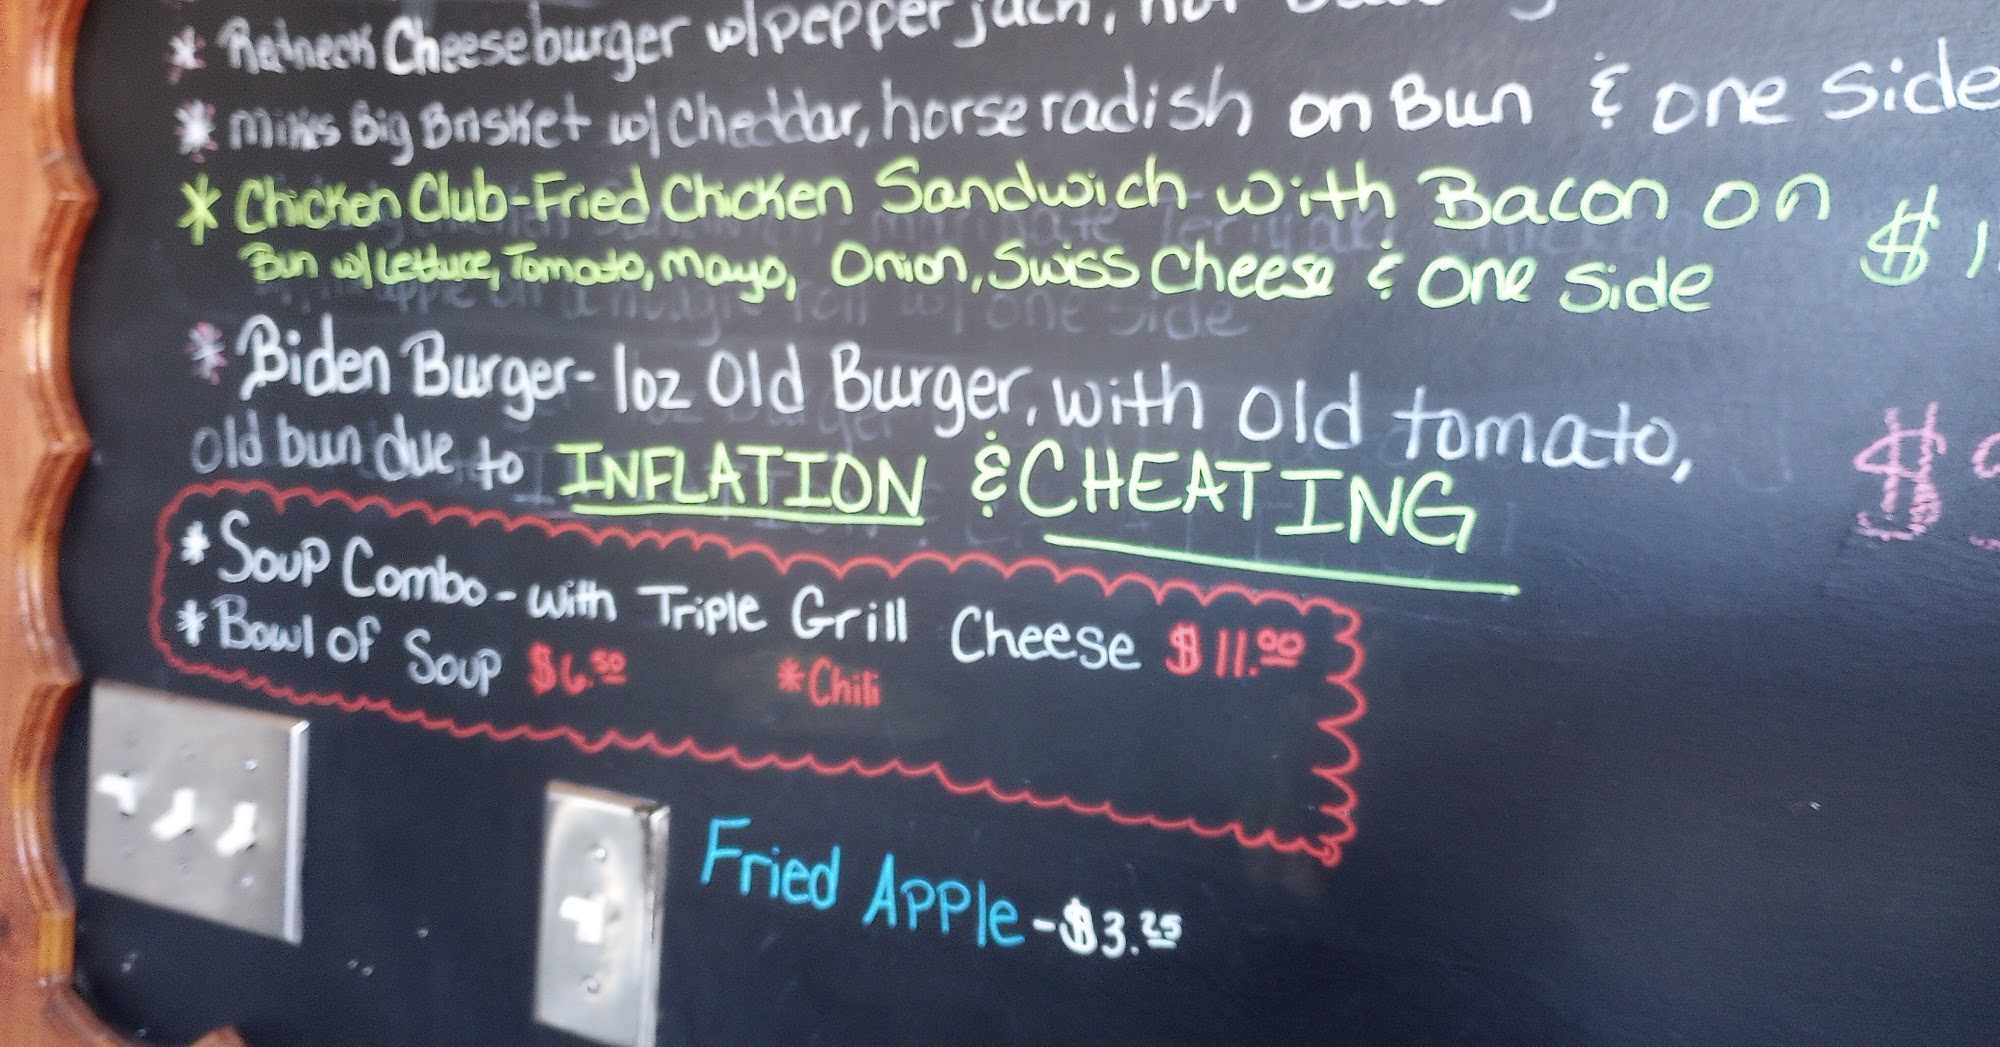 * Redneck Cheeseburger w/pepper jack, hot
* Mikes Big Brisket w/ Cheddar, horseradish on Bun & one Side
* Chicken Club-Fried Chicken Sandwich with Bacon on
$1
Bun w/Lettuce, Tomato, Mayo, Onion, Swiss Cheese & One Side
* Biden Burger- 1oz Old Burger, with old tomato,
old bun due to INFLATION & CHEATING
$
* Soup Combo - with Triple Grill Cheese $11.00
* Bowl of Soup $6.50 *Chili
Fried Apple - $3.25